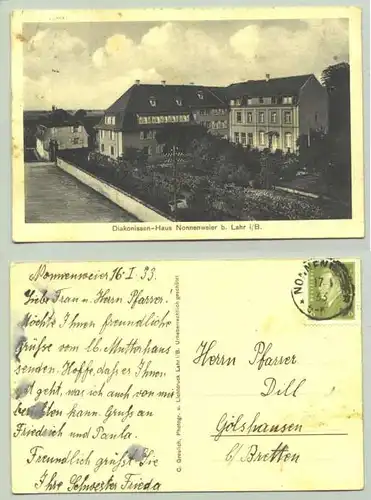 Diakonissen-Haus Nonnenweier b. Lahr i/B.
Nonnenweier 16.I.33.
Liebe Frau u. Herrn Pfarrer!
Möchte Ihnen freundliche
Grüße vom lb. Mutterhaus
senden. Hoffe, daß er Ihnen
gut geht, was ich auch von mir
berichten kann. Gruß an
Friedrich und Paula.
Freundlich grüßt Sie
Ihre Schwester Frieda
G. Greulich, Photogr. u. Lichtdruck Lahr i/B. Urheberrechtlich geschützt
NONNENW
17.
Herrn Pfarrer
Dill
Gölshausen
b/ Bretten